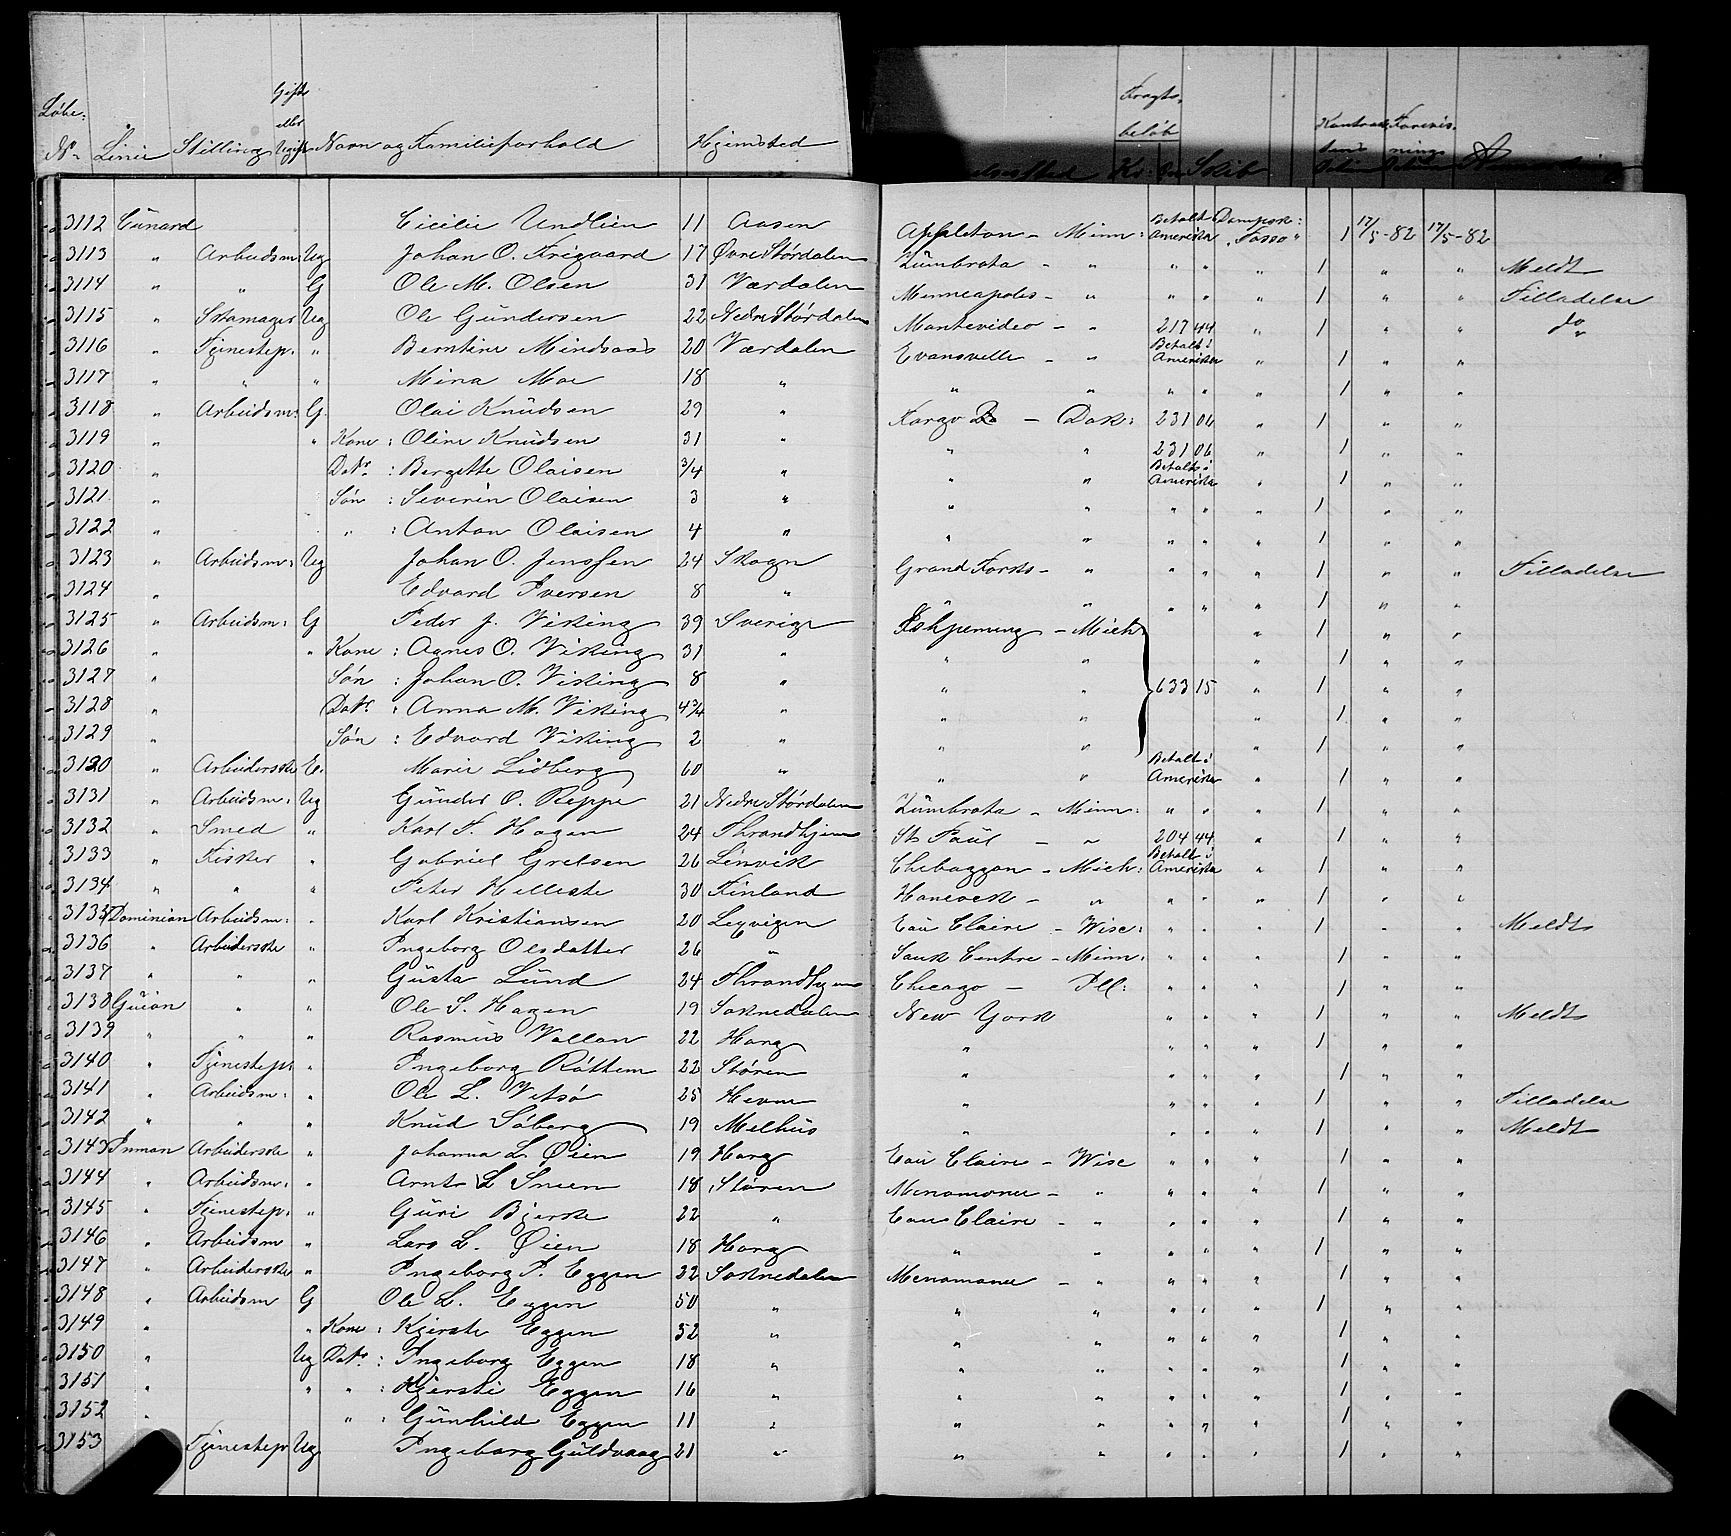 Løbe: No. Linie Stilling Gift eller Ugift Navn og Familieforhold Hjemsted Fragtbeløb Kr. Skib
3112 Cunard Cicilie Undlien 11 Aasen Appleton - Minn: Betalt i Amerika Dampsk: "Tasso" 1 17/5-82 17/5-82
3113 " Arbeidsm: Ug Johan O. Frigaard 17 Øvre Størdalen Zumbrota - " " " " 1 " " Meldt
3114 " " G Ole M. Olsen 31 Værdalen Minneapolis - " " " " 1 " " Tilladelse
3115 " Skomager Ug Ole Gundersen 22 Nedre Størdalen Montevideo - " 217 44 " 1 " " do
3116 " Tjenestep: " Berntine Mindsaas 20 Værdalen Evansville - " Betalt i Amerika " 1 " "
3117 " " " Mina Moe 18 " " " " " " 1 " "
3118 " Arbeidsm: G. Olai Knudsen 29 " Fargo - Dak: 231 06 " 1 " "
3119 " " Kone : Oline Knudsen 31 " " " 231 06 " 1 " "
3120 " Datr. : Bergitte Olaisen 3/4 " " " Betalt i Amerika " 1 " "
3121 " Søn : Severin Olaisen 3 " " " " " " 1 " "
3122 " " : Anton Olaisen 4 " " " " " " 1 " "
3123 " Arbeidsm: Ug Johan O. Jenssen 24 Skogn Grand Forks - " " " " 1 " " Tilladelse
3124 " Edvard Iversen 8 " " " " " 1 " "
3125 " Arbeidsm: G Peder J. Viking 39 Sverige Ishpeming - Mich " 1 " "
3126 " " Kone : Agnes O. Viking 31 " " " " 1 " "
3127 " Søn : Johan O. Viking 8 " " " 633 15 " 1 " "
3128 " Datr " Anna M. Viking 4 3/4 " " " " 1 " "
3129 " Søn : Edvard Viking 2 " " " " 1 " "
3130 " Arbeiderske E. Marie Lidberg 60 " " " Betalt i Amerika " 1 " "
3131 " Arbeidsm: Ug Gunder O. Reppe 21 Nedre Størdalen Zumbrota - Minn: " " " 1 " "
3132 " Smed " Karl F. Hagen 24 Throndhjem St Paul - " 204 44 " 1 " "
3133 " Fisker " Gabriel Gretsen 26 Lenvik Cheboggan - Mich: Betalt i Amerika " 1 " "
3134 " " " Peter Helleste 30 Finland Hancock - " " " " 1 " "
3135 Dominion Arbeidsm: " Karl Kristiansen 20 Lexvigen Eau Claire - Wisc: " " " 1 " " Meldt
3136 " Arbeiderske " Ingeborg Olsdatter 26 " Sauk Centre - Minn: " " " 1 " "
3137 " " " Gusta Lund 24 Throndhjem Chicago - Ill: " " " 1 " "
3138 Guion " " Ole S. Hagen 19 Soknedalen New York " " " 1 " " Meldt
3139 " " " Rasmus Vollan 22 Horg " " " " 1 " "
3140 " Tjenestep: " Ingeborg Råttem 22 Støren " " " " 1 " "
3141 " Arbeidsm: " Ole L. Vitsø 25 Hevne " " " " 1 " " Tilladelse
3142 " " " Knud Søberg 19 Melhus " " " " 1 " " Meldt
3143 Inman Arbeiderske " Johanna L. Øien 19 Horg Eau Claire - Wisc " " " 1 " "
3144 " Arbeidsm: " Arnt L Sneen 18 Støren Menomonee - " " " " 1 " "
3145 " Tjenestep: " Guri Bjerke 22 " Eau Claire - " " " " 1 " "
3146 " Arbeidsm " Lars L. Øien 18 Horg " " " " " 1 " "
3147 " Arbeiderske " Ingeborg P. Eggen 32 Soknedalen Menomonee - " " " " 1 " "
3148 " Arbeidsm G Ole L. Eggen 50 " " " " " " 1 " "
3149 " " Kone : Kjerste Eggen 52 " " " " " " 1 " "
3150 " Ug Datr. : Ingeborg Eggen 18 " " " " " " 1 " "
3151 " " " : Kjersti Eggen 16 " " " " " " 1 " "
3152 " " : Gunhild Eggen 11 " " " " " " 1 " "
3153 Tjenestep Ug Ingeborg Guldvaag 21 " " " " " " 1 " "